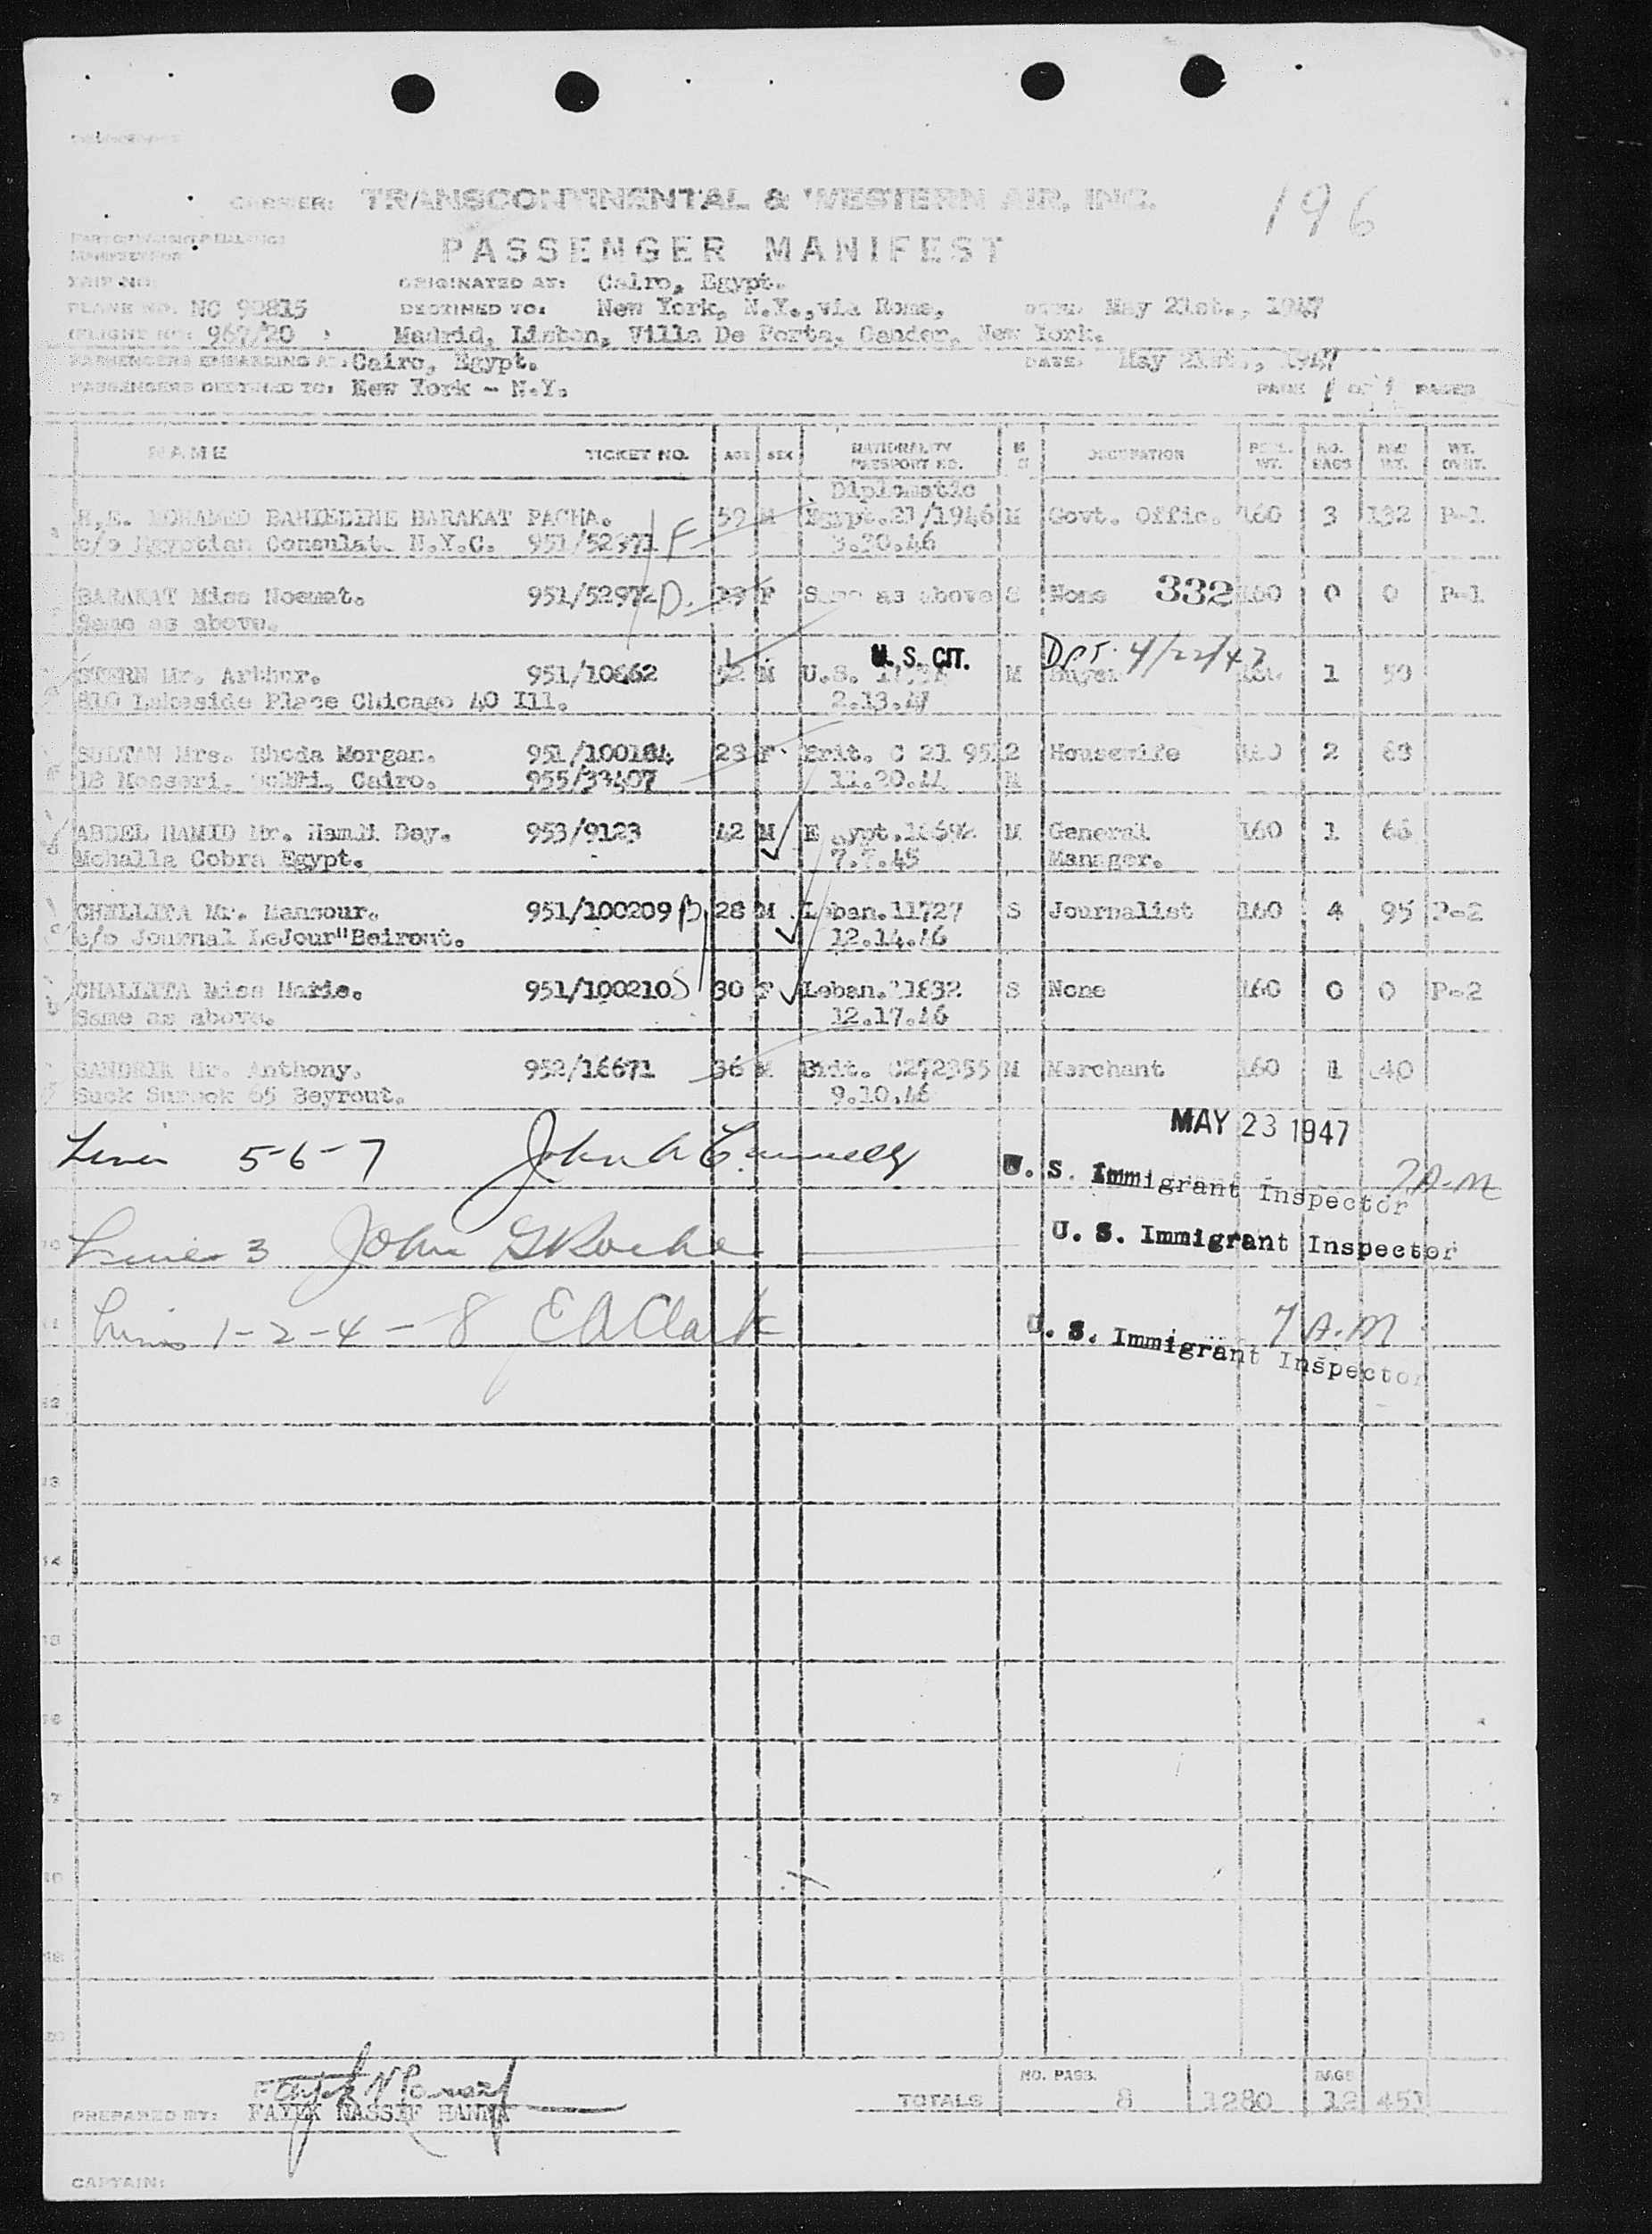 196
CARRIER: TRANSCONTINENTAL & WESTERN AIR, INC.
PASSENGER MANIFEST
TRIP NO. ORIGINATED AT: Cairo, Egypt.
PLANE NO. NC 90815 DESTINED TO: New York, N.Y., via Rome, DATE: May 21st., 1947
(FLIGHT NO: 967/20 Madrid, Lisbon, Villa De Porta, Gander, New York.
PASSENGERS EMBARKING AT: Cairo, Egypt. DATE: May 21st., 1947
PASSENGERS DESTINED TO: New York - N.Y. PAGE 1 OF 1 PAGES
NAME TICKET NO. AGE SEX NATIONALITY PASSPORT NO. OCCUPATION NO. BAGS WT.
Diplomatic
H.E. MOHAMED BAHIEDINE BARAKAT PACHA. 59 M Egypt.21/1946 M Govt. Offic. 160 3 132 P-1
c/o Egyptian Consulat. N.Y.C. 951/52971 F 3.30.46
BARAKAT Miss Noemat. 951/52972 D. F Same as above S None 332 160 0 0 P-1
Same as above.
STERN Mr. Arthur. 951/10662 52 M U.S. U. S. CIT. M Buyer Dpt. 4/22/47 1 50
810 Lakeside Place Chicago 40 Ill. 2.13.47
SULTAN Mrs. Rhoda Morgan. 951/100184 28 F Brit. C 21 952 Housewife 160 2 63
12 Mosseri, Cairo. 955/33407 11.20.44 M
ABDEL HAMID Mr. Hamdi Bey. 953/9123 42 M Egypt.18692 M General 160 1 66
Mehalla Cobra Egypt. 45 Manager.
CHELLITA Mr. Mansour. 951/100209 B 28 M Leban.11727 S Journalist 160 4 95 P-2
c/o Journal LeJour"Beirout. 12.14.46
CHALLITA Miss Marie. 951/100210 S 30 F Leban.11832 S None 160 0 0 P-2
Same as above. 12.17.46
Mr. Anthony. 952/16671 36 M Brit. C272355 M Merchant 160 1 40
Suck Sursock 65 Beyrout. 9.10.46
MAY 23 1947
Lines 5-6-7 John A Connelly U. S. Immigrant Inspector 7 A.M
Lines 3 John G Roche U. S. Immigrant Inspector
Lines 1-2-4-8 E A Clark 7 A.M
U. S. Immigrant Inspector
12
13
14
15
16
17
18
19
20
NO. PASS. BAGS
TOTALS 8 1280 12 451
PREPARED BY: FAYEK NASSIF HANNA
CAPTAIN: